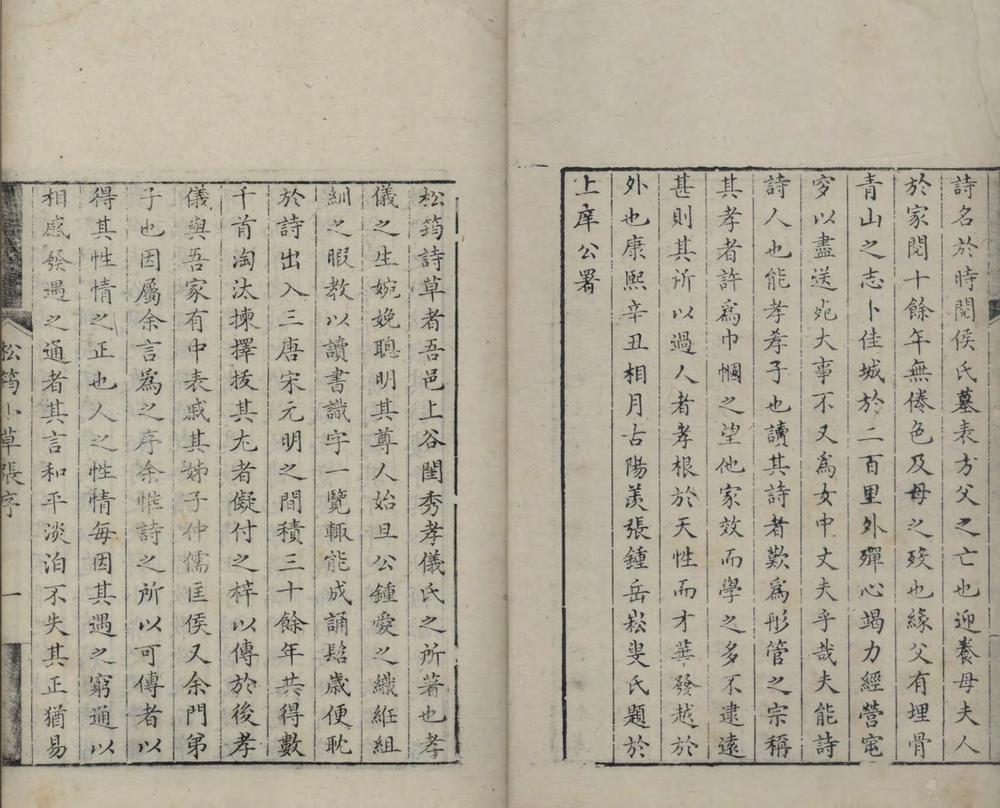 詩名於時閱侯氏墓表方父之亡也迎養母夫人
於家閱十餘年無倦色及母之歿也緣父有埋骨
青山之志卜佳城於二百里外殫心竭力經營窀
穸以盡送死大事不又為女中丈夫乎哉夫能詩
詩人也能孝孝子也讀其詩者歎爲彤管之宗稱
其孝者許爲巾幗之望他家效而學之多不逮遠
甚則其所以過人者孝根於天性而才華發越於
外也康熙辛丑相月古陽羨張鍾岳崧叟氏題於
上庠公署
松筠詩草者吾邑上谷閨秀孝儀氏之所著也孝
儀之生婉娩聰明其尊人始旦公鍾愛之織絍組
紃之暇教以讀書識字一覽輒能成誦髫歲便耽
於詩出入三唐宋元明之間積三十餘年共得數
千首淘汰揀擇拔其尤者儗付之梓以傳於後孝
儀與吾家有中表戚其姊子仲儒匡侯又余門弟
子也因屬余言爲之序余惟詩之所以可傳者以
得其性情之正也人之性情每因其遇之窮通以
相感發遇之通者其言和平淡泊不失其正猶易
松筠小草張序 一